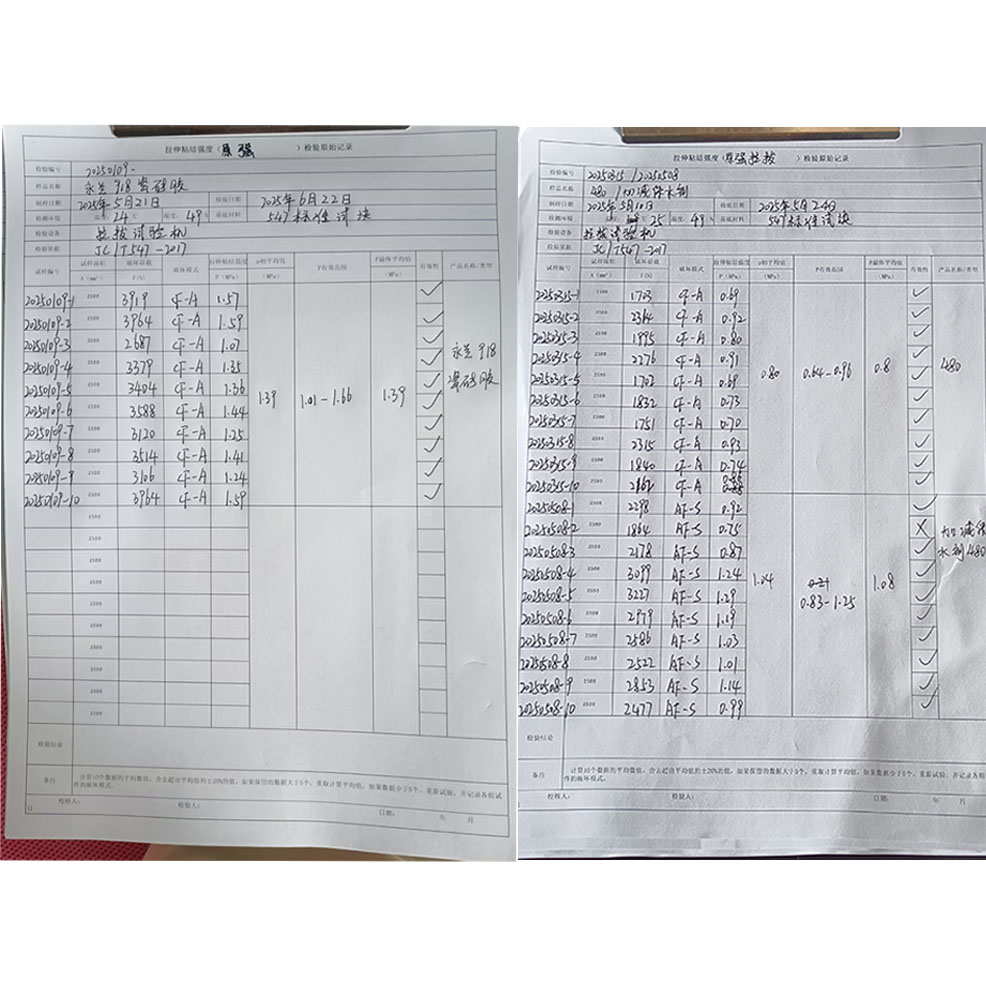 拉伸粘结强度（原强 ）检验原始记录
检验编号 20250109-
样品名称 永兰918瓷砖胶
制样日期 2025年5月21日 检验日期 2025年6月22日
检测环境 温度：24℃ 湿度：49% 基底材料 547标准试块
检验设备 拉拔试验机
检验依据 JC/T547-2017
试样编号 试样面积 A（mm²） 破坏荷载 F(N) 破坏模式 拉伸粘结强度 P（MPa） P初平均值 (MPa) P有效范围 P最终平均值 (MPa) 有效性 产品名称/类型
20250109-1 2500 3919 CF-A 1.57 ✓
20250109-2 2500 3964 CF-A 1.59 ✓
20250109-3 2500 2687 CF-A 1.07 ✓
20250109-4 2500 3379 CF-A 1.35 ✓
20250109-5 2500 3404 CF-A 1.36 ✓
20250109-6 2500 3588 CF-A 1.44 ✓
20250109-7 2500 3120 CF-A 1.25 ✓
20250109-8 2500 3514 CF-A 1.41 ✓
20250109-9 2500 3106 CF-A 1.24 ✓
20250109-10 2500 3964 CF-A 1.59 ✓
1.39 1.01-1.66 1.39
永兰918
瓷砖胶
2500
2500
2500
2500
2500
2500
2500
2500
2500
2500
检验结论
备注 计算10个数据的平均数值，舍去超出平均值的±20%的值，如果保留的数据大于5个，重取计算平均值，如果数据少于5个，重新试验，并记录各组试
件的破坏模式。
校核人： 检验人：
日期： 年 月
日
拉伸粘结强度（原强拉拔 ）检验原始记录
检验编号 20250315 / 20250508
样品名称 480 /
制样日期 2025年5月10日 检验日期 2025年5月24日
检测环境 温度： 25 湿度：49% 基底材料 547标准试块
检验设备 拉拔试验机
检验依据 JC/T547-2017
试样编号 试样面积 A（mm²） 破坏荷载 F(N) 破坏模式 拉伸粘结强度 P（MPa） P初平均值 (MPa) P有效范围 P最终平均值 (MPa) 有效性 产品名称/类型
20250315-1 2500 1703 CF-A 0.69 ✓
20250315-2 2500 2314 CF-A 0.92 ✓
20250315-3 2500 1995 CF-A 0.80 ✓
20250315-4 2500 2276 CF-A 0.91 ✓
20250315-5 2500 1702 CF-A 0.69 ✓
20250315-6 2500 1832 CF-A 0.73 ✓
20250315-7 2500 1751 CF-A 0.70 ✓
20250315-8 2500 2315 CF-A 0.93 ✓
20250315-9 2500 1840 CF-A 0.74 ✓
20250315-10 2500 2162 CF-A ✓
0.80 0.64-0.96 0.8 480
20250508-1 2298 AF-S 0.92 ✓
20250508-2 2500 1864 AF-S 0.75 X
20250508-3 2500 2178 AF-S 0.87 ✓
20250508-4 2500 3099 AF-S 1.24 ✓
20250508-5 2500 3227 AF-S 1.29 ✓
20250508-6 2500 2979 AF-S 1.19 ✓
20250508-7 2500 2586 AF-S 1.03 ✓
20250508-8 2500 2522 AF-S 1.01 ✓
20250508-9 2500 2853 AF-S 1.14 ✓
20250508-10 2500 2477 AF-S 0.99 ✓
1.04 0.83-1.25 1.08
水剂480
检验结论
备注 计算10个数据的平均数值，舍去超出平均值的±20%的值，如果保留的数据大于5个，重取计算平均值，如果数据少于5个，重新试验，并记录各组试
件的破坏模式。
校核人： 检验人：
日期： 年 月